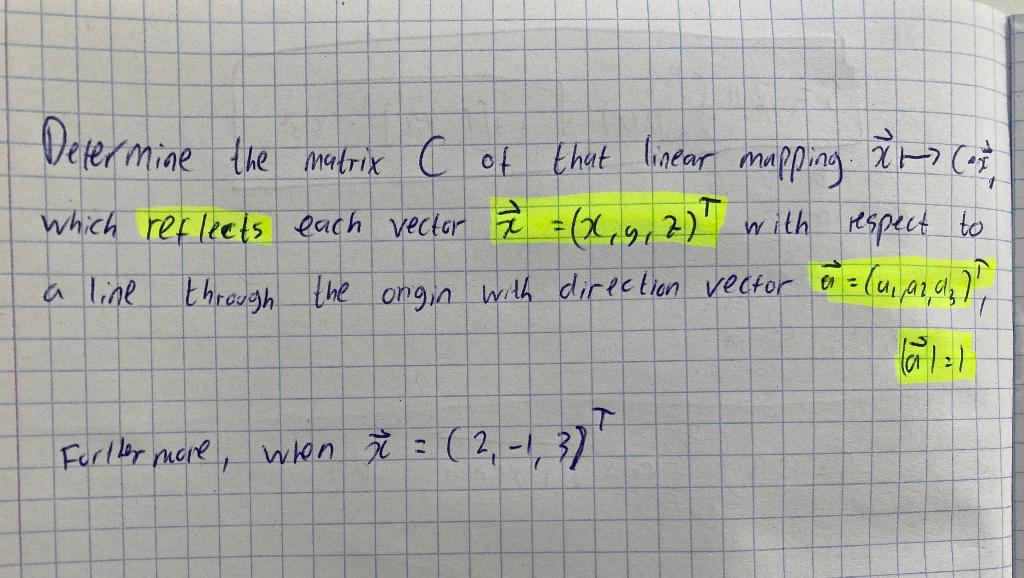 Determine the matrix C of that linear mapping x⃗ ↦ C·x⃗,
which reflects each vector x⃗ = (x, y, z)ᵀ with respect to
a line through the origin with direction vector a⃗ = (a₁, a₂, a₃)ᵀ,
|a⃗| = 1
Furthermore, when x⃗ = (2, -1, 3)ᵀ